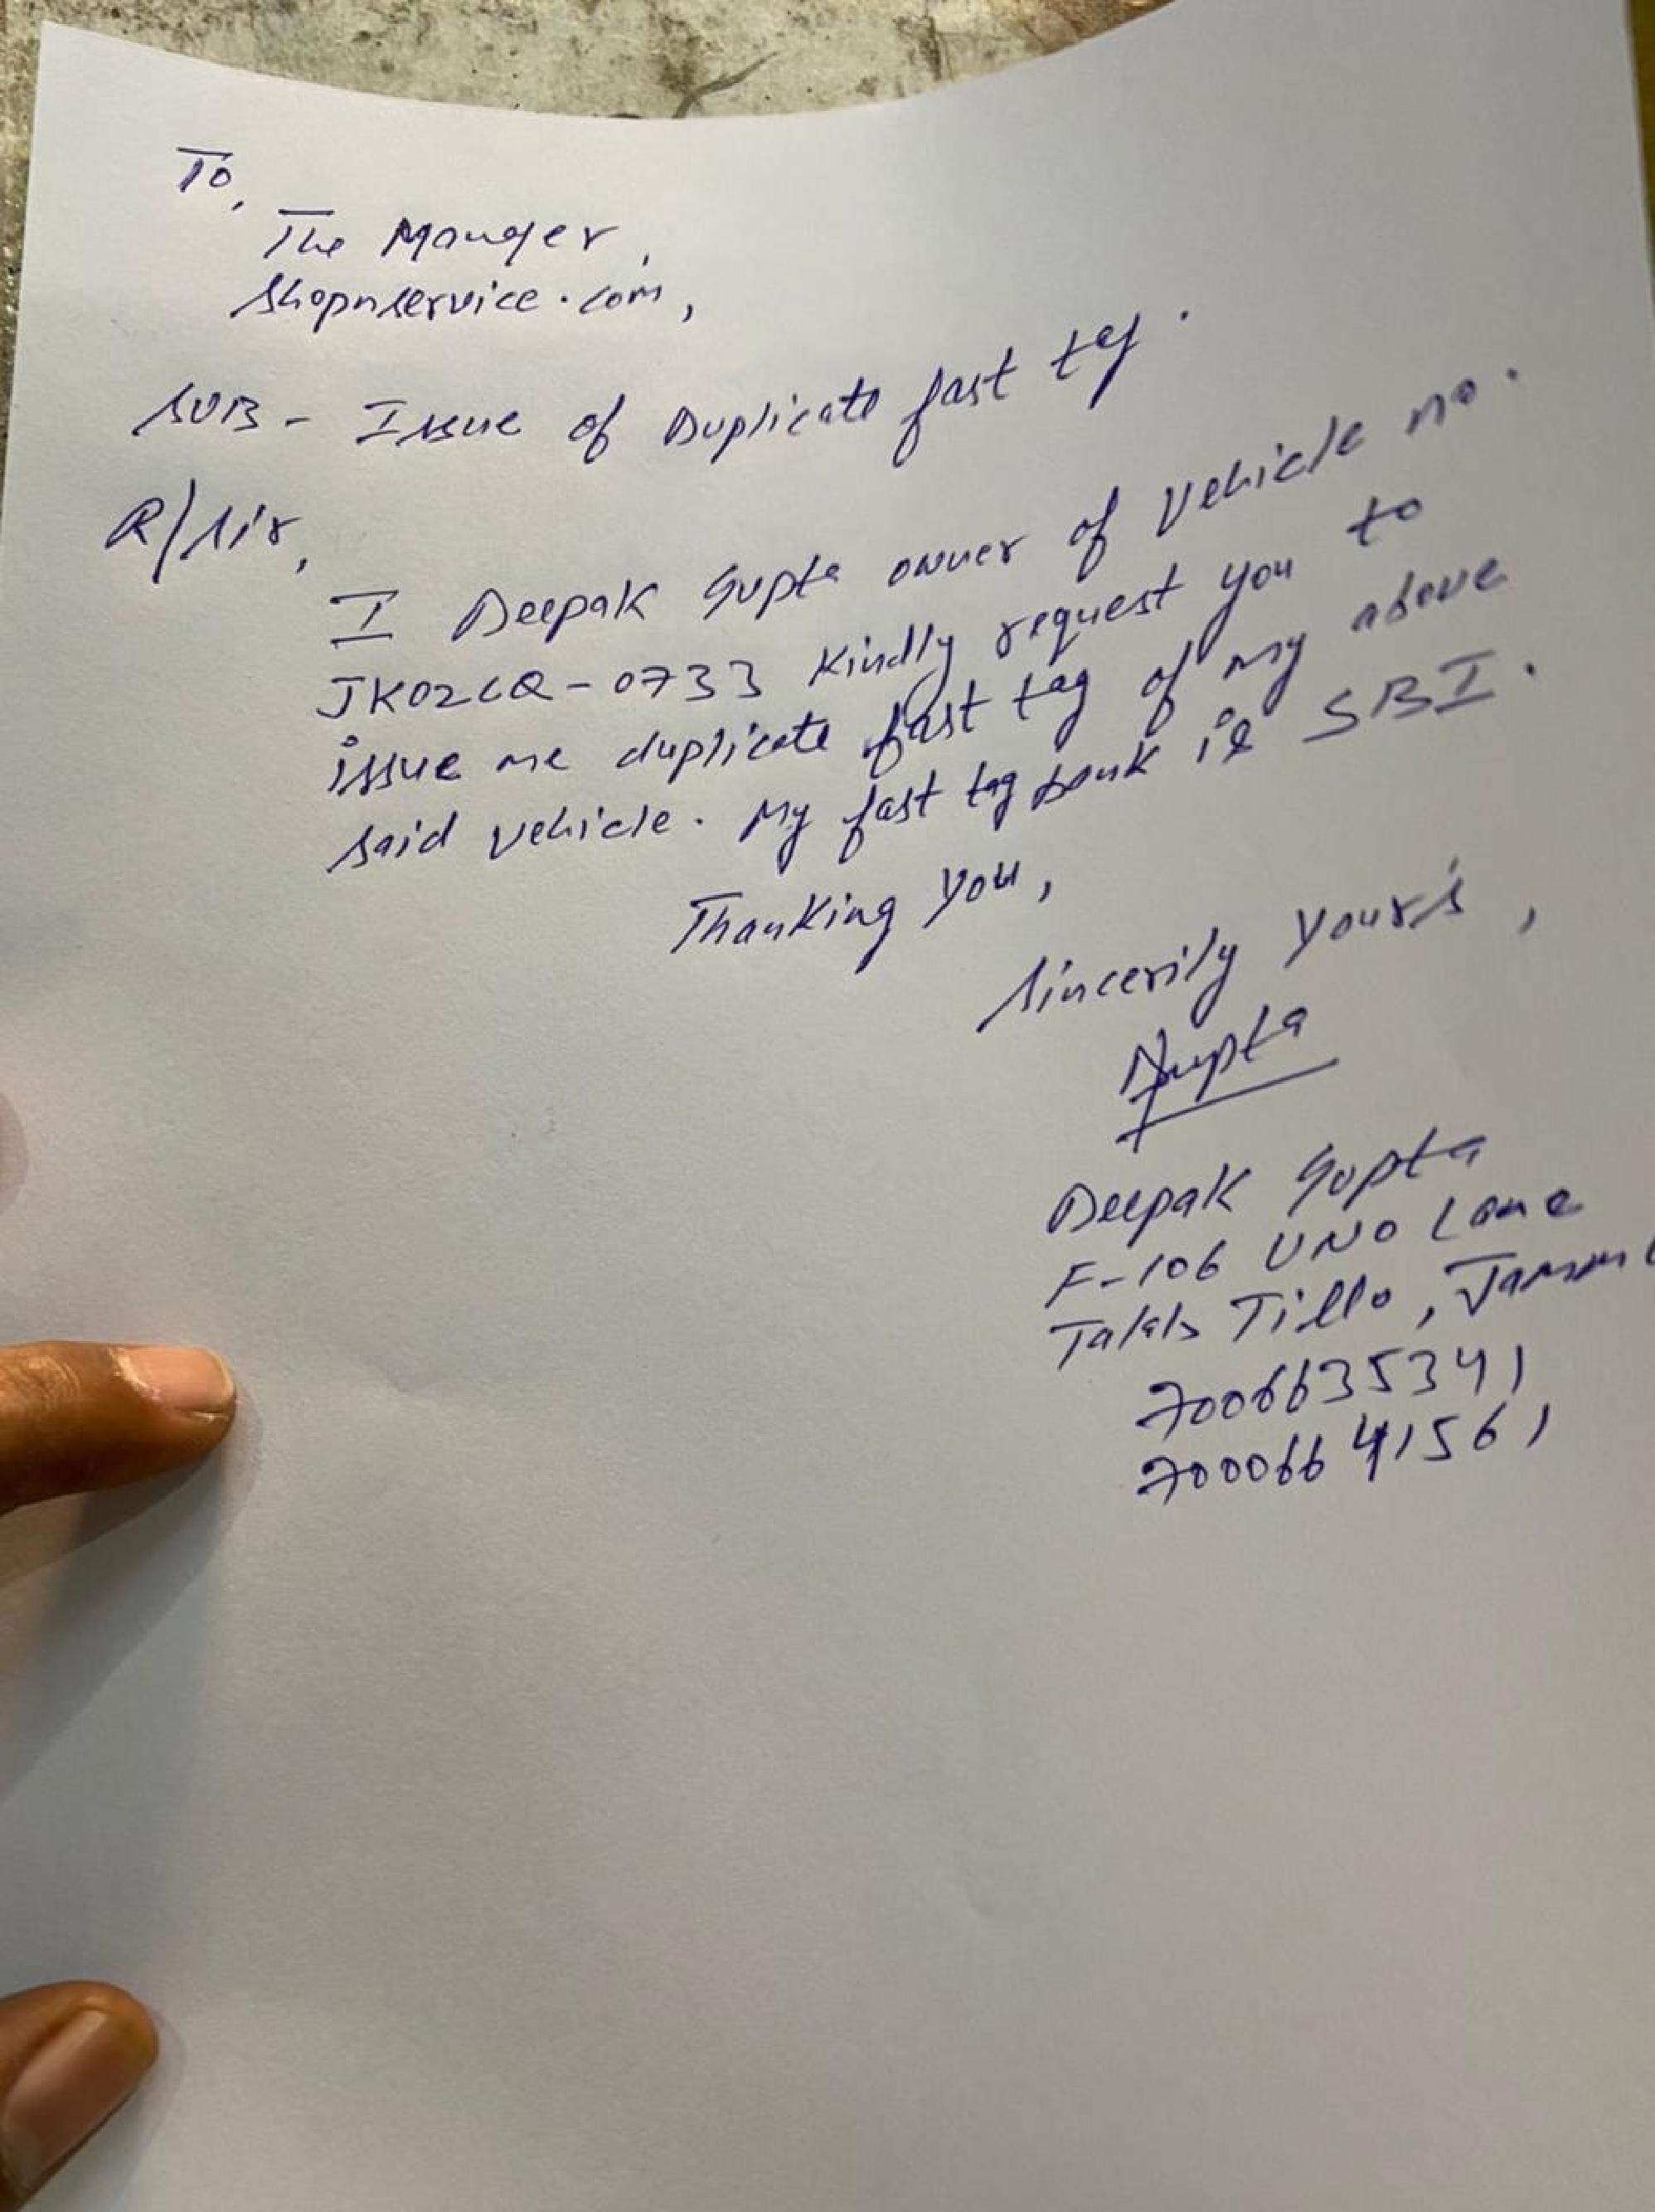 To,
The Manager,
Shopnservice.com,
SUB - Issue of Duplicate fast tag.
R/Sir,
I Deepak Gupta owner of Vehicle no.
JK02CQ-0733 Kindly request you to
issue me duplicate fast tag of my above
said vehicle. My fast tag bank is SBI.
Thanking you,
Sincerily Your's,
Dgupta
Deepak Gupta
F-106 UNO Lane
Talab Tillo, Jammu
7006635341
70006641561